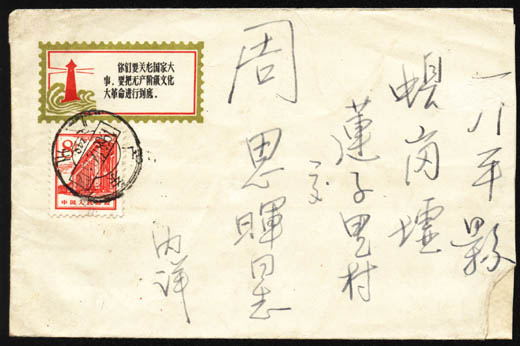 你们要关心国家大
事，要把无产阶级文化
大革命进行到底。
开平縣
蜆岗墟
蓮子里村
交
周思暉同志
内详
8
中国人民邮政